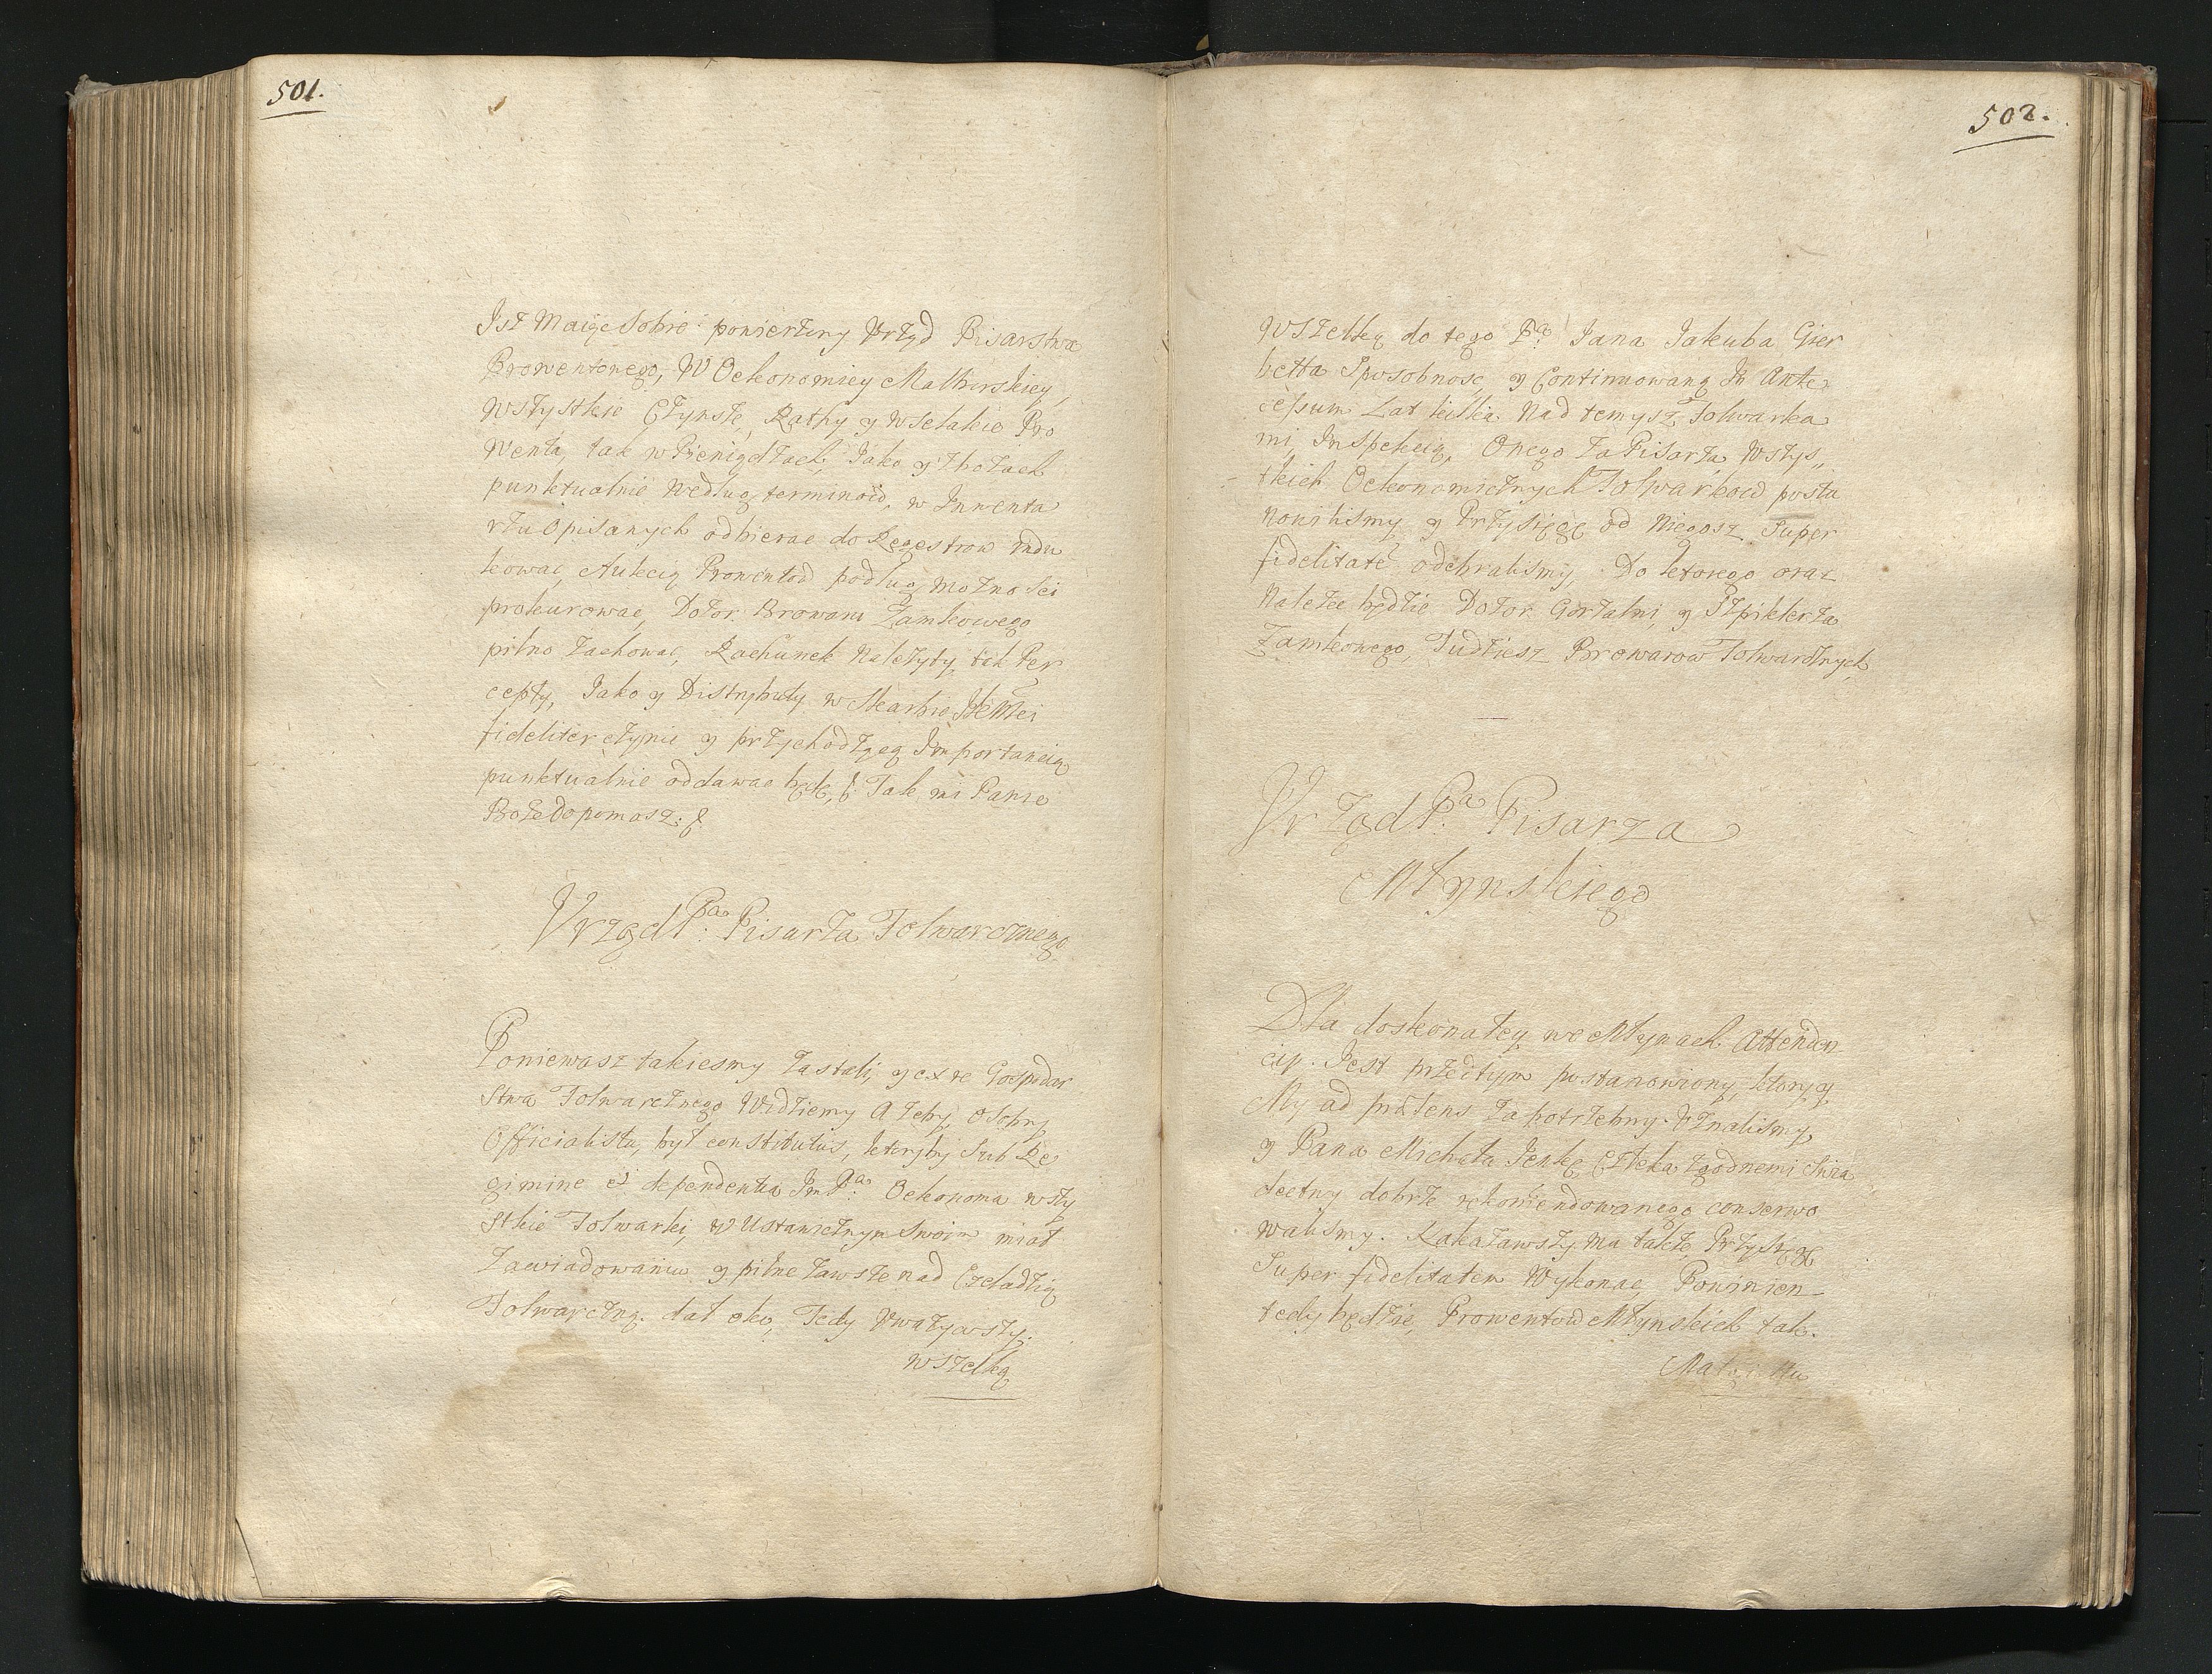 501.
Isz Maiąc Sobie powierzony Vrząd Pisarstwa
Prowentowego, W Oekonomiey Malborskiey,
Wszystkie Czynsze, Rathy y Wselakie Pro
Wenta, tak w Pieniądzach, Jako y Zbożach
punktualnie Według terminow, w Inwenta
rzu Opisanych odbierac do Regestrow indu
kowac, Aukcią Prowentow podług Możnosci
prokurowac, Dozor Browaru Zamkowego
pilno Zachowac, Rachunek Należyty, tak Per
cepty, Jako y Distrybuty w Skarbie JKMci
fideliter czynic y przychodzącą Importancią
punktualnie oddawac będę, Tak mi Panie
Boże Dopomosz.
Vrząd Pa: Pisarza Folwarcznego
Poniewasz takiesmy Zastali, y ex re Gospodar
Stwa Folwarcznego Widziemy Ażeby, Osobny
Officialista, był constitutus, ktoryby Sub Re
gimine et dependentia ImPa: Oekonoma wszy
Stkie Folwarki, w Ustawicznym Swoim miał
Zawiadowaniu y pilne Zawsze nad Czeladzią
Folwarczną dał oko, Tedy Vważywszy
wszelką
502.
Wszelką do tego Pa: Jana Jakuba Gier
betta Sposobnosc, y Continuowaną In Ante
cessum Lat kilka Nad temysz Folwarka
mi, Inspekcią, Onego Za Pisarza Wszys
tkich Oekonomicznych Folwarkow posta
nowilismy y Przysięgę od Niegosz Super
fidelitate odebralismy, Do ktorego oraz
Należec będzie Dozor Gorzalni, y Szpiklerza
Zamkowego, Tudziesz Browarow Folwarcznych
Vrząd Pa: Pisarza
Młynskiego
Dla doskonałey we Młynach Attenden
cyi Jest przedtym postanowiony, ktory y
My ad præsens Za potrzebny Vznalismy,
y Pana Michała Jeskę Człeka zgodnemi Swia
dectwy dobrze rekomendowanego conserwo
walismy. Rakazawszy Mu także Przysięgę
Super fidelitatem Wykonac, Powinien
tedy będzie, Prowentow Młynskich tak